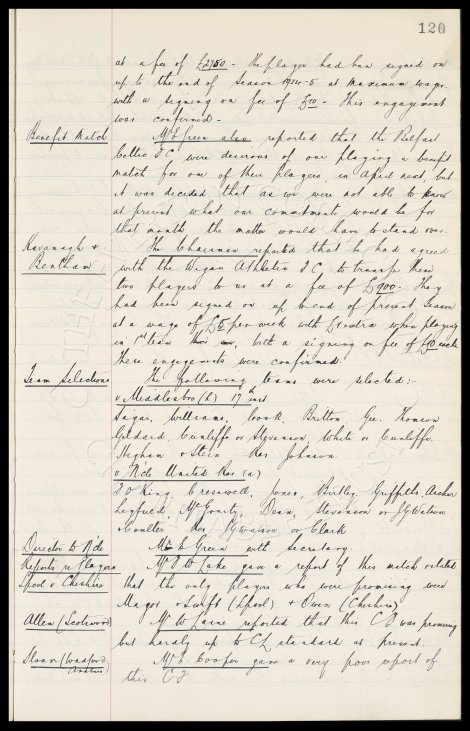 120
at a fee of £2750 - The player had been signed on
up to the end of season 1934-5 at maximum wage
with a signing on fee of £10 - This engagement
was confirmed -
Benefit Match
Mr E Green also reported that the Belfast
Celtic F C were desirous of our playing a benefit
match for one of their players, in April next, but
it was decided that as we were not able to know
at present what our commitments would be for
that month the matter would have to stand over.
Kavanagh &
Bentham
The Chairman reported that he had agreed
with the Wigan Athletic F.C. to transfer these
two players to us at a fee of £900. They
had been signed on up to end of present season
at a wage of £5 per week with £1 extra when playing
in 1st team with a signing on fee of £10 each
These engagements were confirmed.
Team Selections
The following teams were selected:-
v Middlesbro (h) 17th inst
Sagar, Williams, Cook, Britton Gee. Thomson
Geldard, Cunliffe or Stevenson, White or Cunliffe.
Higham & Stein Res Johnson.
v N'cle United Res (a)
King, Cresswell, Jones, Griffiths, Archer
Leyfield, McGourty, Dean, Stevenson or J G Watson
& Coulter Res J G Watson or Clark
Director to N'cle
Mr E Green with Secretary.
Reports re Players
L'pool v Cheshire
Mr gave a report of this match & stated
that the only players who were promising were
Mayor & Swift (L'pool) & Owen (Cheshire)
Allen (Scotswood)
Mr reported that this C F was promising
but hardly up to C L standard at present.
Mr E Cooper gave a very poor report of
this C F